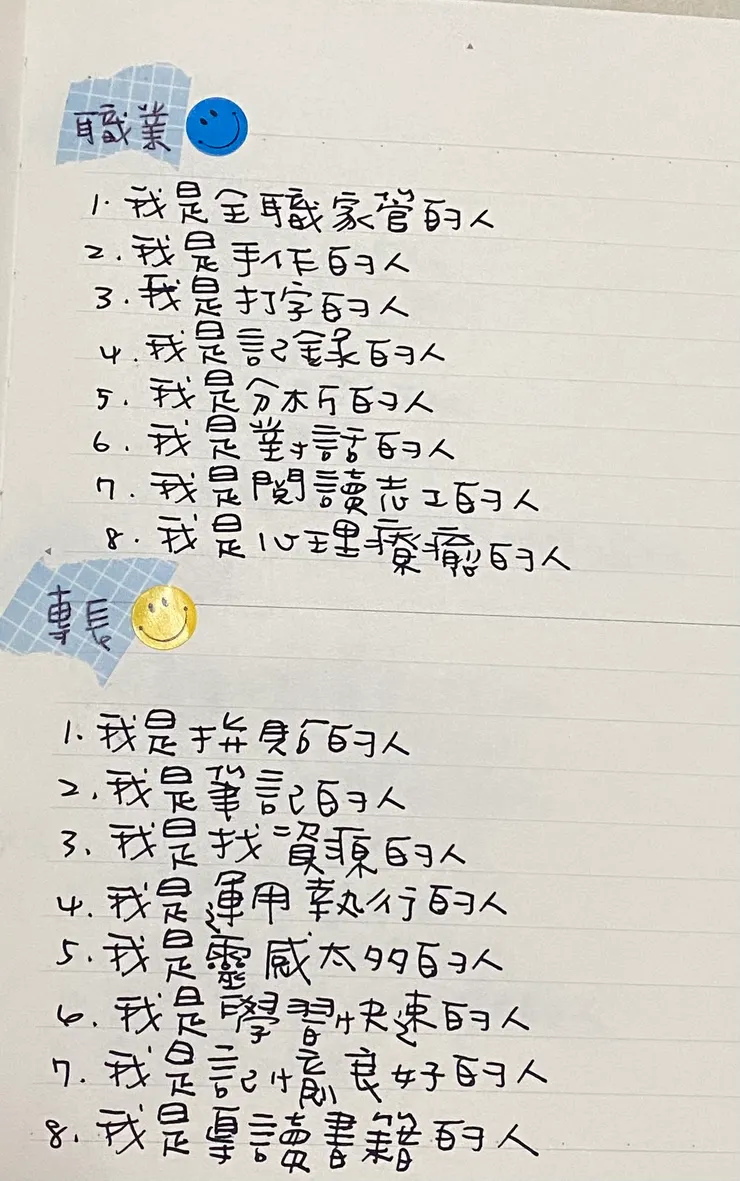 職業
1. 我是全職家管的人
2. 我是手作的人
3. 我是打字的人
4. 我是記錄的人
5. 我是分析的人
6. 我是對話的人
7. 我是閱讀志工的人
8. 我是心理療癒的人
專長
1. 我是拼貼的人
2. 我是筆記的人
3. 我是找資源的人
4. 我是運用執行的人
5. 我是靈感太多的人
6. 我是學習快速的人
7. 我是記憶良好的人
8. 我是 讀書籍的人